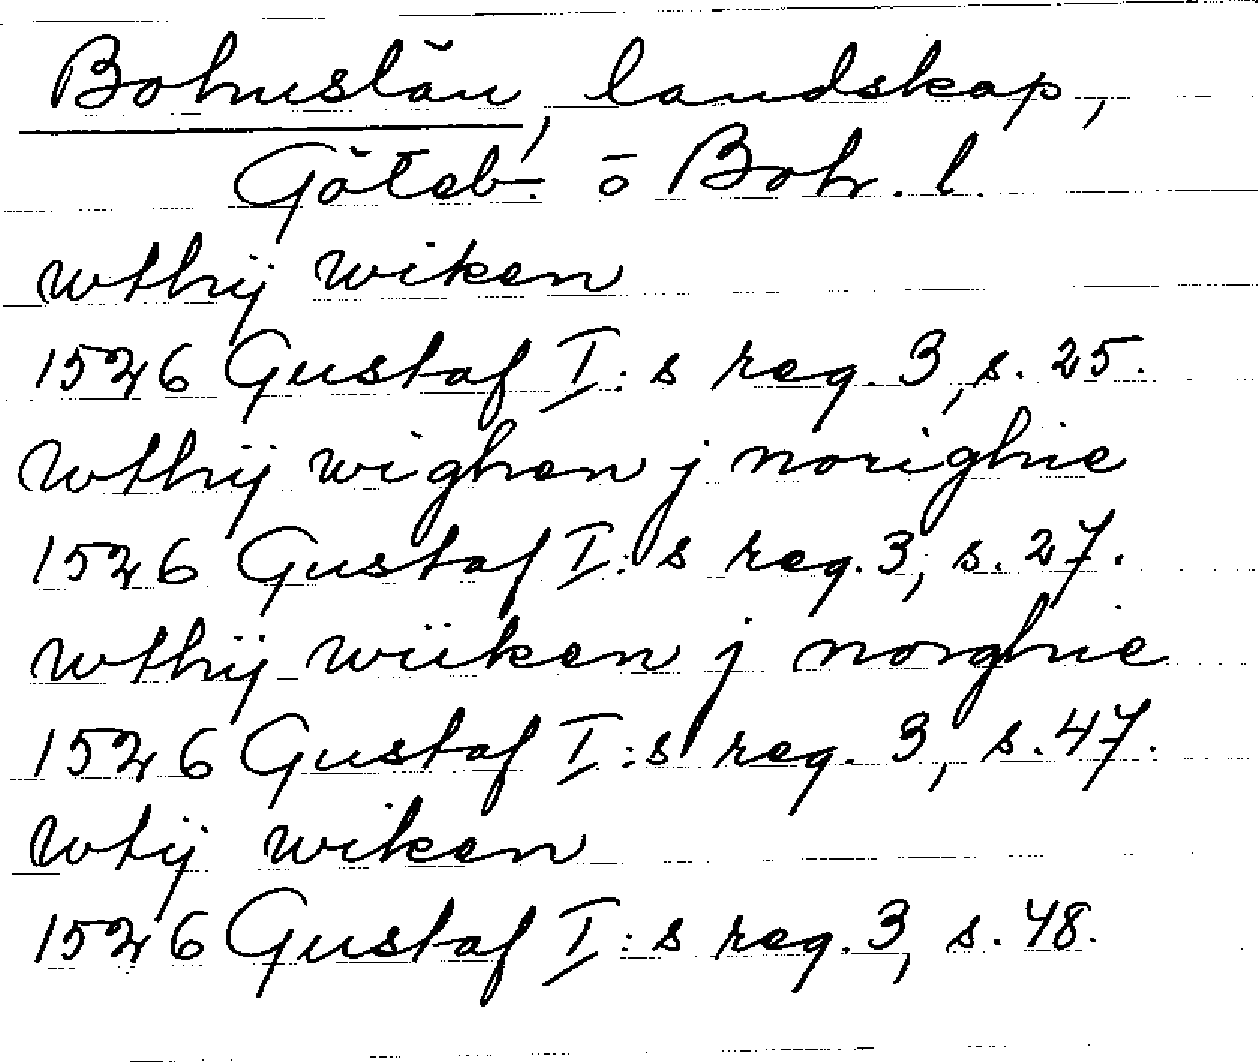 Bohuslän, landskap,
Göteb. o Boh. l.
wthij wiken
1526 Gustaf I:s reg. 3, s. 25.
Wthij wighen j norighie
1526 Gustaf I:s reg. 3, s. 27.
wthij wiiken j norghie
1526 Gustaf I:s reg. 3, s. 47.
Wtij wiken
1526 Gustaf I:s reg. 3, s. 48.